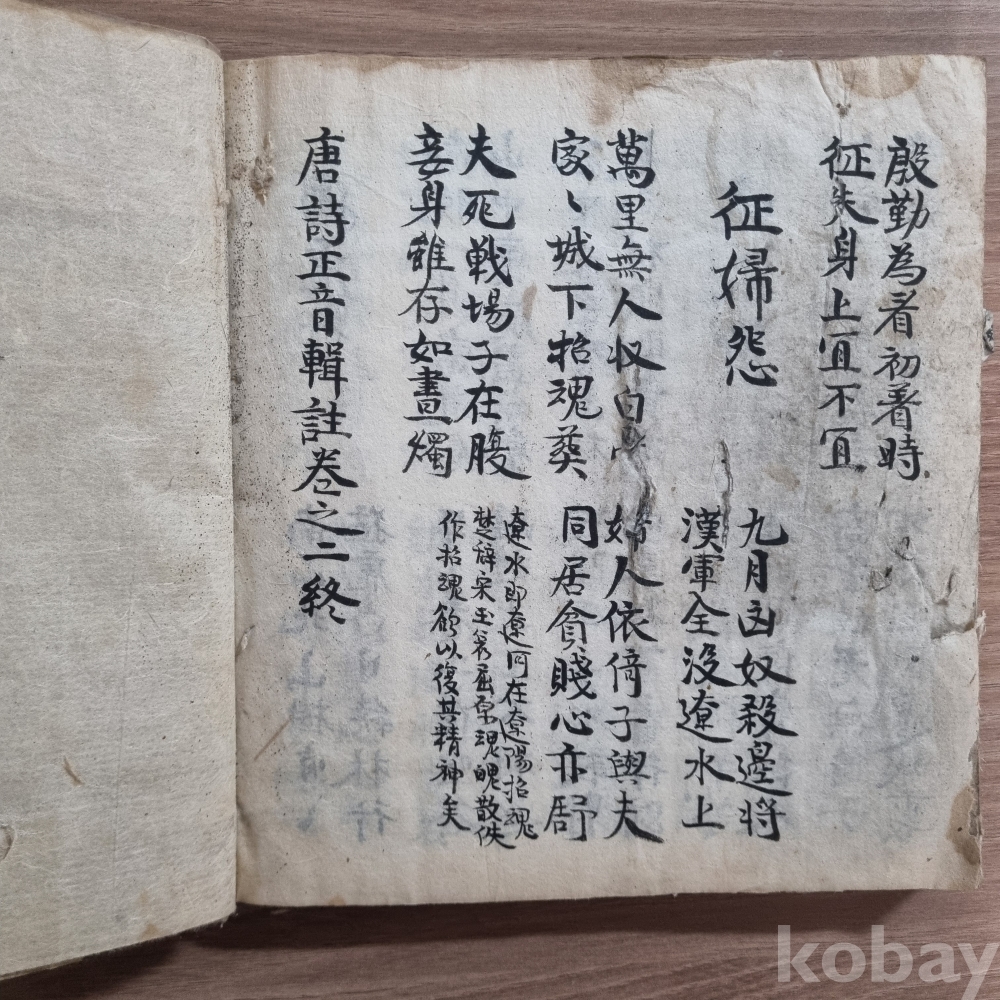 殷勤為看初著時
征夫身上宜不宜
征婦怨
九月匈奴殺邊將
漢軍全没遼水上
萬里無人収白
家〻城下招魂葬
好人依倚子與夫
同居貧賤心亦舒
夫死戰場子在腹
妾身雖存如晝燭
遼水即遼河在遼陽招魂
楚辭宋玉哀屈原魂魄散佚
作招魂欲以復其精神矣
唐詩正音輯註卷之二終
kobay